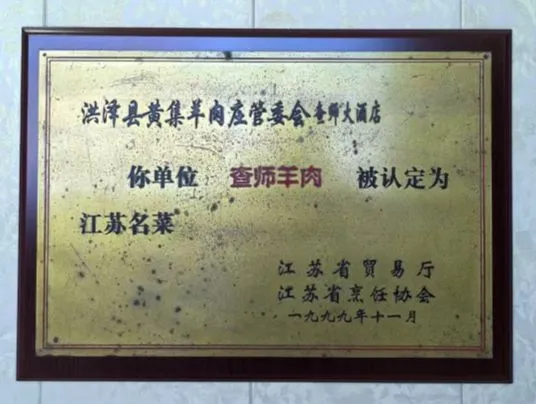 洪泽县黄集羊肉庄管委会查师大酒店
你单位 查师羊肉 被认定为
江苏名菜
江苏省贸易厅
江苏省烹饪协会
一九九九年十一月